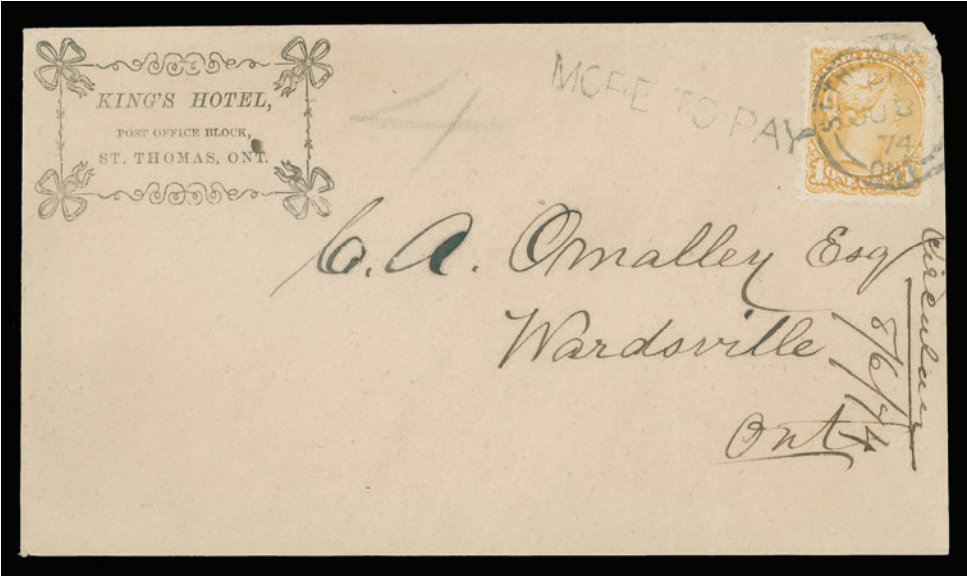 KING'S HOTEL,
POST OFFICE BLOCK,
ST. THOMAS, ONT.
4
MORE TO PAY
ST
8
74
ONT
ONE
C. A. Omalley Esq
Wardsville
Ont
Circulars
8/6/74